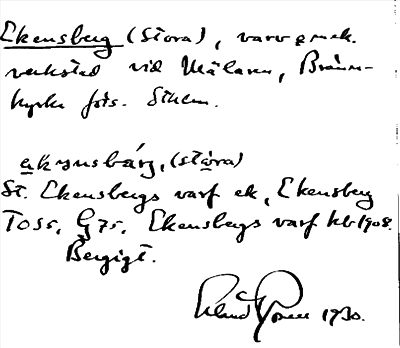 Ekensberg (Stora), varv o. mek.
verkstad vid Mälaren, Bränn-
kyrka förs. Sthlm.
(störa)
St. Ekensbergs varf ek, Ekensberg
T055, G75, Ekensbergs varf kb 1908.
Bergigt.
1930.